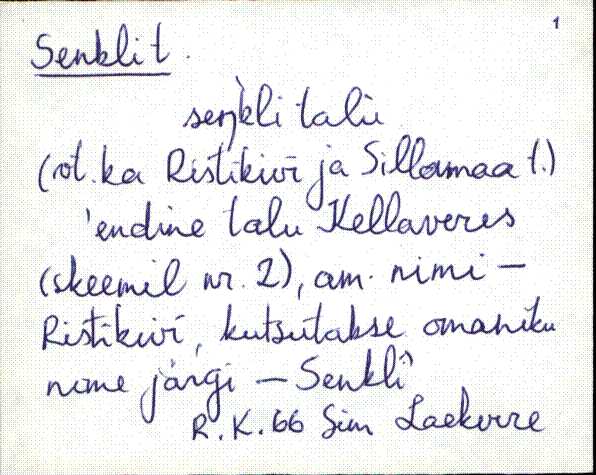 1
Senkli t.
seŋ̀kli talu
(vt. ka Ristikivi ja Sillamaa t.)
'endine talu Kellaveres
(skeemil nr. 2), am. nimi –
Ristikivi, kutsutakse omaniku
nime järgi – Senkli
R.K. 66 Sim Laekvere